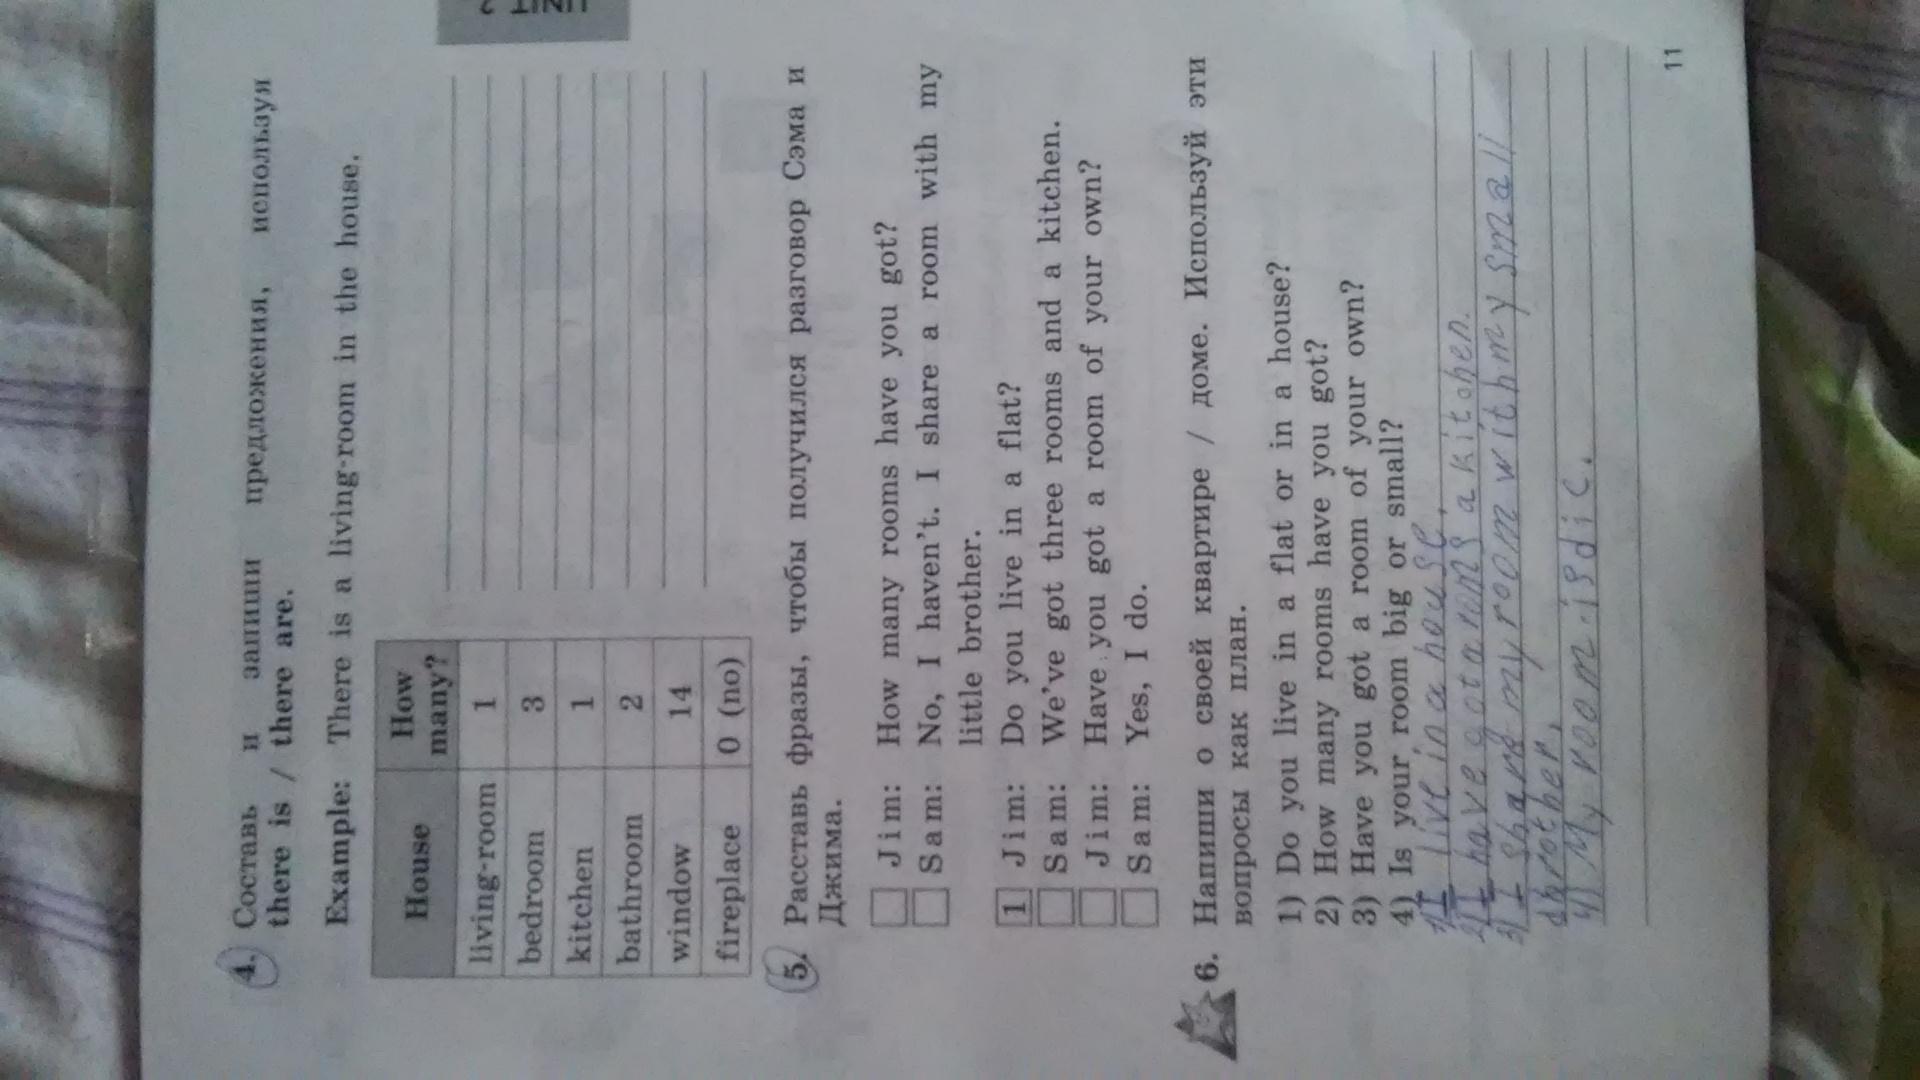 UNIT 2
4. Составь и запиши предложения, используя
there is / there are.
Example: There is a living-room in the house.
House How many?
living-room 1
bedroom 3
kitchen 1
bathroom 2
window 14
fireplace 0 (no)
5. Расставь фразы, чтобы получился разговор Сэма и
Джима.
Jim: How many rooms have you got?
Sam: No, I haven't. I share a room with my
little brother.
1 Jim: Do you live in a flat?
Sam: We've got three rooms and a kitchen.
Jim: Have you got a room of your own?
Sam: Yes, I do.
6. Напиши о своей квартире / доме. Используй эти
вопросы как план.
1) Do you live in a flat or in a house?
2) How many rooms have you got?
3) Have you got a room of your own?
4) Is your room big or small?
1) I live in a house.
2) I have got a kitchen.
3) I share my room with my small
brother.
4) My room is dic.
11